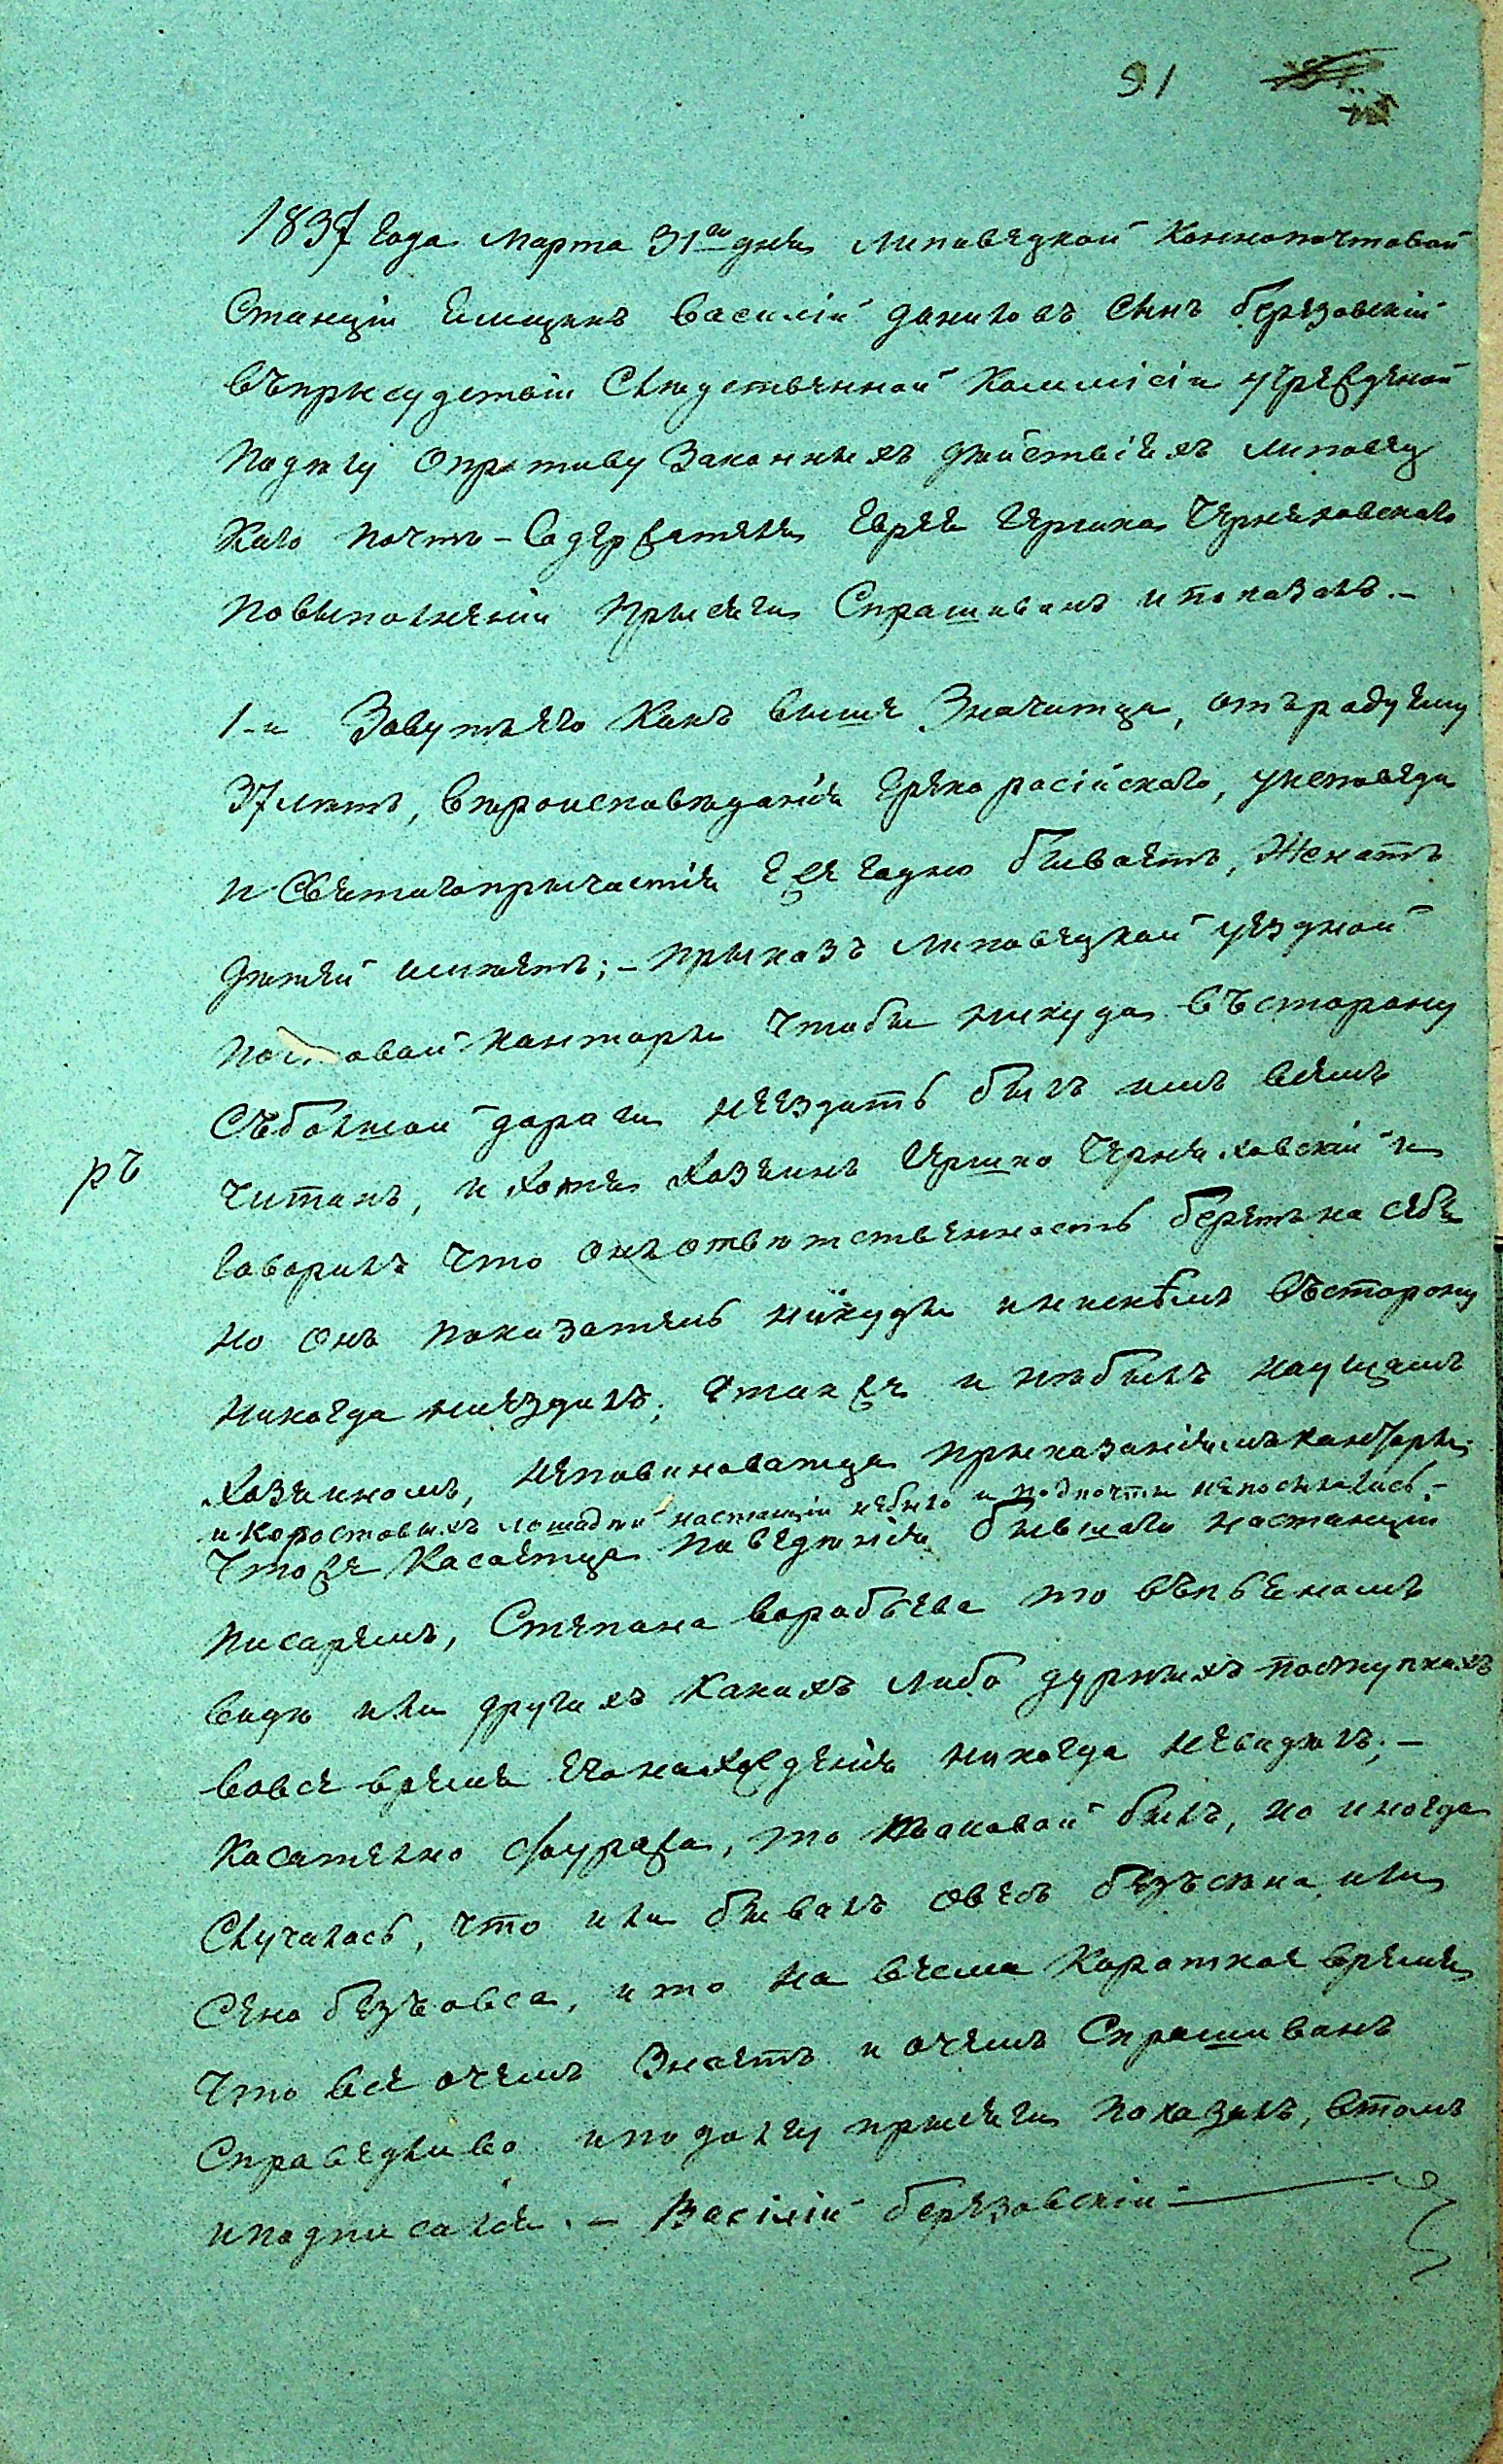 91
1837 года Марта 31го дня Липовецкой Коннопочтовой
Станціи Емщикъ Василій Даниловъ Сынъ Березовскій
въприсудствіи Следственной Коммісіи учрежденой
Поделу Опротиву Законныхъ действіяхъ Липовец
Каго Почть-Содержателя Еврея Гершка Черняховскаго
Повыполненіи Присяги Спрашиванъ и показалъ.-
1-и Зовутъего Какъ выше Значитца, отъроду ему
37 летъ, вероисповеданія Грекоросійскаго, уисповеди
и Святагопричастія Ежегодно бываетъ, Женатъ
Детей имеетъ;- Приказъ Липовецкой уездной
Почтовой Канторы Чтобы никуда въсторону
Събольшой дороги неездить былъ имъ всемъ
Читанъ, и Хотя Хозяинъ Гершко Черняховскій и
говорилъ Что онъ ответственность беретъ на себя
но онъ показатель никуды инискемъ въсторону
никогда неездилъ, также и небылъ наущаемъ
Хозяиномъ, неповиноватца приказаніямъ канторы
и Коростовыхъ лошадей настанціи небыло и подпочты непосылались.-
Чтоже Касаетца Поведенія бывшаго настанціи
писаремъ, Степана Воробьева то въпьяномъ
виде или другихъ какихъ либо дурныхъ поступкахъ
вовсе время егонахожденія никогда невиделъ,-
Касательно фуража, то таковой былъ, но иногда
Случалось, что или бывалъ овесъ безъсена или
Сено безъовса, ито на весма Короткое время
Что все очемъ Знаетъ и очемъ Спрашиванъ
Справедливо иподолгу присяги показалъ, втомъ
иподписался.- Васілій Березовскій
ръ